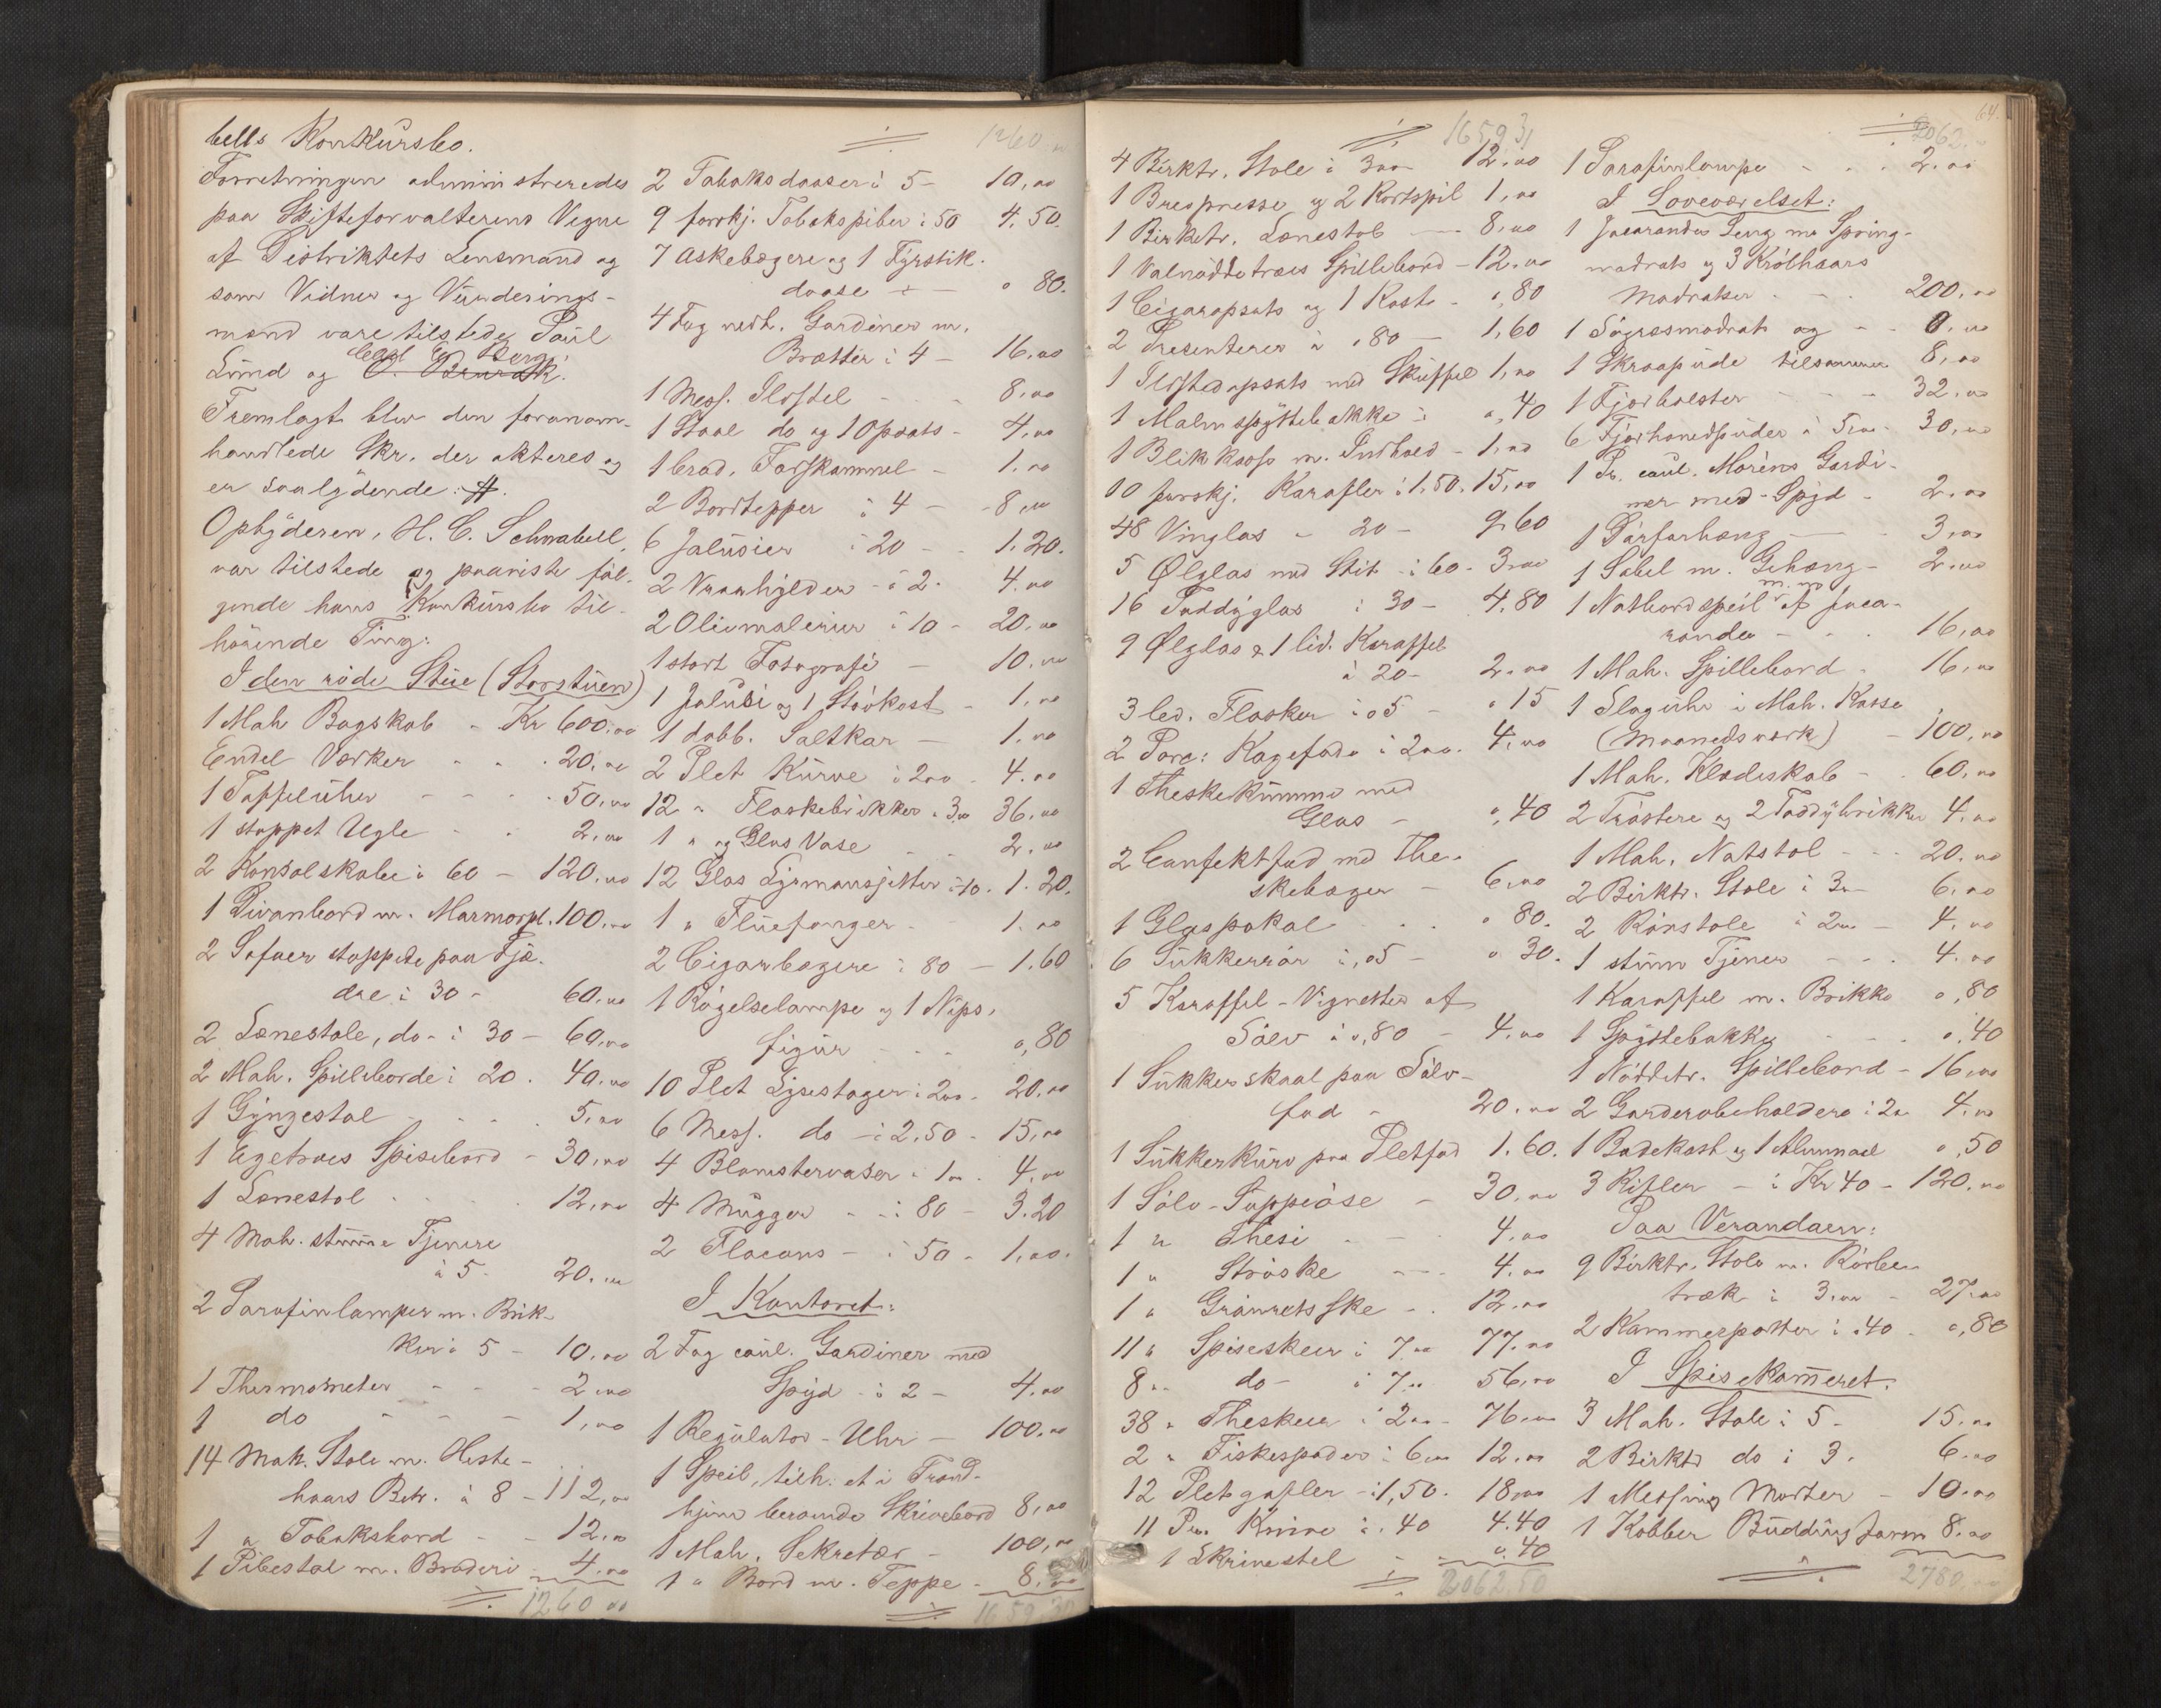 bells Konkursbo.
Forretningen administreredes
paa Skifteforvalterens Vegne
af Distriktets Lensmand og
som Vidner og Vurderings-
mænd vare tilstede Paul
Carl E. Berg
Lund og O.
Fremlagt blev den foranom-
handlede Skr. der akteres og
er saalydende: #.
Opbyderen, H. C. Schnabell,
var tilstede og paaviste føl-
gende hans Konkursbo til-
hørende Ting:
I den røde Stue (Storstuen)
1 Mah Bogskab - Kr 600.00
Endel Værker - - - 20.00
1 Taffeluhr - - - 50.00
1 stoppet Ugle - - 2.00
2 Konsolskabe à 60 - 120.00
1 Divanbord m. Marmorpl. 100.00
2 Sofaer stoppede paa Fjæ-
dre à 30 - 60.00
2 Lænestole, do - à 30 - 60.00
2 Mah. Spilleborde à 20. 40.00
1 Gyngestol - - - 5.00
1 Egetræes Spisebord - 30.00
1 Lænestol - - - 12.00
4 Mah. stumme Tjenere
à 5 - 20.00
2 Parafinlamper m. Brik-
ker à 5 - 10.00
1 Thermometer - - - 2.00
1 do - - - 1.00
14 Mah. Stole m. Heste-
haars Betr. à 8 - 112.00
1 " Tobaksbord - - 12.00
1 Pibestol m. Broderi 4.00
1260 00
1260.00
2 Tobaksdaaser à 5 - 10.00
9 forskj. Tobakspiber à 50 4.50.
7 Askebægere og 1 Fyrstik-
daase - - 0 80.
4 Fag nedh. Gardiner m.
Brætter à 4 - 16.00
1 Mess. Ildstel - - - 8.00
1 Staal do og 1 Opsats - 4.00
1 brod. Fodskammel - 1.00
2 Bordtepper à 4 - - 8.00
6 Jalusier à 20 - - 1.20.
2 Vraahylder - à 2. 4.00
2 Oliemalerier à 10 - 20.00
1 stort Fotografi - 10.00
1 Jalusi og 1 Støvkost - 1.00
1 dobb. Saltkar - 1.00
2 Plet Kurve à 2.00 - 4.00
12 " Flaskebrikker à 3.00 36.00
1 " og Glas Vase - - 2.00
12 Glas Lysmansjetter à 10. 1.20.
1 " Fluefanger - 1.00
2 Cigarbægere à 80 - 1.60
1 Røgelselampe og 1 Nips-
figur - - - 0,80
10 Plet Lysestager à 2.00. 20.00
6 Mess. do - à 2.50 - 15.00
4 Blomstervaser à 1.00. 4.00
4 Mugger - - à 80 - 3.20
2 Flacons - à 50 - 1.00.
I Kontoret:
2 Fag coul. Gardiner med
Spyd - à 2 - 4.00
1 Regulator-Uhr - 100.00
1 Speil, tilh. et i Trond-
hjem beroende Skrivebord 8.00
1 Mah. Sekretær - 100.00
1 " Bord m. Teppe - 8.00
1659.30
1659 3
4 Birktr. Stole à 3.00 12.00
1 Brevpresse og 2 Kortspil 1.00
1 Birketr. Lænestol - 8.00
1 Valnøddetræes Spillebord - 12.00
1 Cigaropsats og 1 Kost - 0,80
2 Presenterer à ,80 - 1,60
1 Ildstedopsats med Skuffel 1,00
1 Malm spyttebakke à 0,40
1 Blikkasse m. Indhold - 1.00
10 forskj. Karafler à 1.50. 15.00
48 Vinglas - 20 - 9.60
5 Ølglas med Stet - à 60 - 3.00
16 Toddyglas à 30 - 4.80
9 Ølglas & 1 lid. Karaffel
à 20 - 2.00
3 led. Flasker à 05 - 0 15
2 Porc: Kagefade à 2.00. 4.00
1 Theskekumme med
Glas - 0,40
2 Confektfad med The-
skebæger - 6.00
1 Glaspokal - - - 0 80.
6 Sukkerrør à ,05 - 0 30.
5 Karaffel-Vignetter af
Sølv à 0,80 - 4.00
1 Sukkerskaal paa Sølv-
fad - 20.00
1 Sukkerkurv paa Pletfad 1.60.
1 Sølv-Suppeøse - 30.00
1 " Thesi - - - 4.00
1 " Strøske - - - 4.00
1 " Grønretsske - - 12.00
11 " Spiseskeer à 7.00 77.00
8 " do - à 7.00 56.00
38 " Theskeer à 2.00 - 76.00
2 " Fiskespader à 6.00 12.00
12 Pletgafler - à 1,50. 18.00
11 Par Knive à .40 4.40
1 Skrivestel - 0.40
2062.50
64.
2062.
1 Parafinlampe - - - 2.00
I Soveværelset:
1 Jacaranda Seng m. Spring-
madrats og 3 Krølhaars
Madratser - - - 200.00
1 Søgræsmadrats og - - 0.00
1 Skraapude tilsammen 8.00
1 Fjærbolster - - - 32.00
6 Fjærhovedpuder à 5.00 - 30.00
1 Pr. coul. Moréns Gardi-
ner med Spyd - 2.00
1 Dørforhæng - - 3.00
1 Sabel m. Gehæng - 2.00
1 Natbordspeil af Jaca-
randa - - - 16.00
1 Mah. Spillebord - 16.00
1 Slaguhr i Mah. Kasse
(Maanedsværk) - 100.00
1 Mah. Klædeskab - - 60.00
2 Trøstere og 2 Toddybrikker 4.00
1 Mah. Natstol - - - 20.00
2 Birktr. Stole à 3.00 6.00
2 Rørstole à 2.00 - 4.00
1 stum Tjener - - - 4.00
1 Karaffel m. Brikke 0,80
1 Spyttebakke - - - 0.40
1 Nøddetr. Spillebord - 16.00
2 Garderobeholdere à 2.00 4.00
1 Badekost og 1 0,50
3 Rifler - à Kr 40 - 120.00
Paa Verandaen:
9 Birktr. Stole m. Rørbe-
træk à 3.00 - 27.00
2 Kammerpotter à .40 - 0,80
I Spisekammeret.
3 Mah. Stole à 5 - 15.00
2 Birktr do à 3. 6.00
1 Messing Morter - 10.00
1 Kobber Buddingform 8.00
2780.00